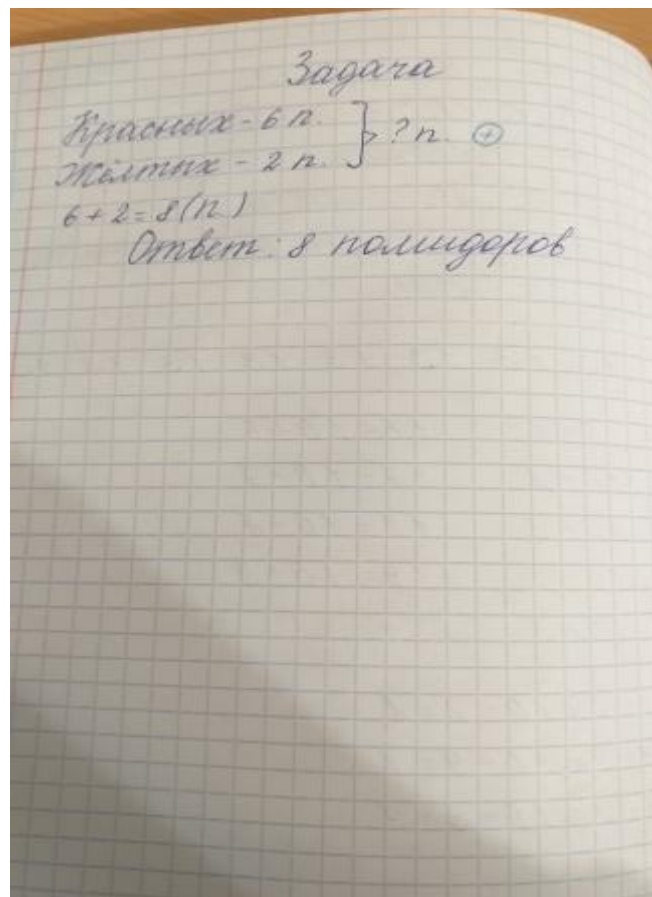 Задача
Красных - 6 п. } ? п. +
Жёлтых - 2 п.
6 + 2 = 8 (п)
Ответ: 8 помидоров